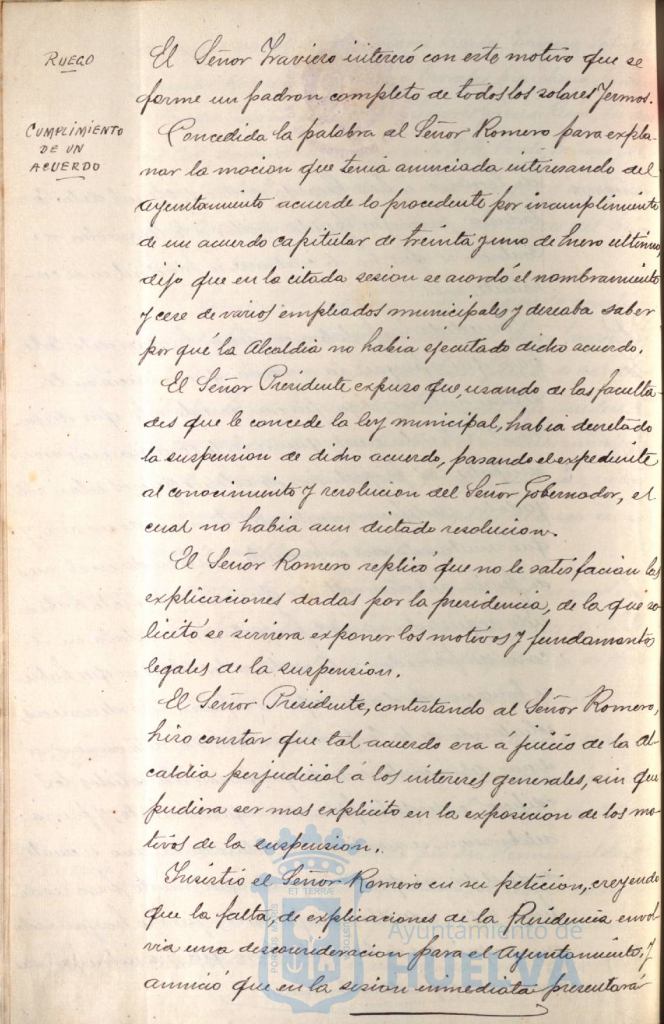 RUEGO
El Señor Traviero interesó con este motivo que se
forme un padron completo de todos los solares Yermos.
CUMPLIMIENTO
DE UN
ACUERDO
Concedida la palabra al Señor Romero para expla-
nar la mocion que tenia anunciada interesando del
Ayuntamiento acuerde lo procedente por incumplimiento
de un acuerdo capitular de treinta y uno de Enero ultimo,
dijo que en la citada sesion se acordó el nombramiento
y cese de varios empleados municipales y deseaba saber
por qué la Alcaldia no habia ejecutado dicho acuerdo.
El Señor Presidente expuso que, usando de las faculta-
des que le concede la ley municipal, habia decretado
la suspension de dicho acuerdo, pasando el expediente
al conocimiento y resolucion del Señor Gobernador, el
cual no habia aun dictado resolucion.
El Señor Romero replicó que no le satisfacian las
explicaciones dadas por la presidencia, de la que so
licitó se sirviera exponer los motivos y fundamentos
legales de la suspension.
El Señor Presidente, contestando al Señor Romero,
hizo constar que tal acuerdo era á juicio de la Al-
caldia perjudicial á los intereses generales, sin que
pudiera ser mas explicito en la exposicion de los mo-
tivos de la suspension.
Insistió el Señor Romero en su peticion, creyendo
que la falta, de explicaciones de la Presidencia envol
via una desconsideracion para el Ayuntamiento, y
anunció que en la sesion inmediata presentará
PORTUS MARIS
ET TERRAE
CUSTODIA
Ayuntamiento de
HUELVA